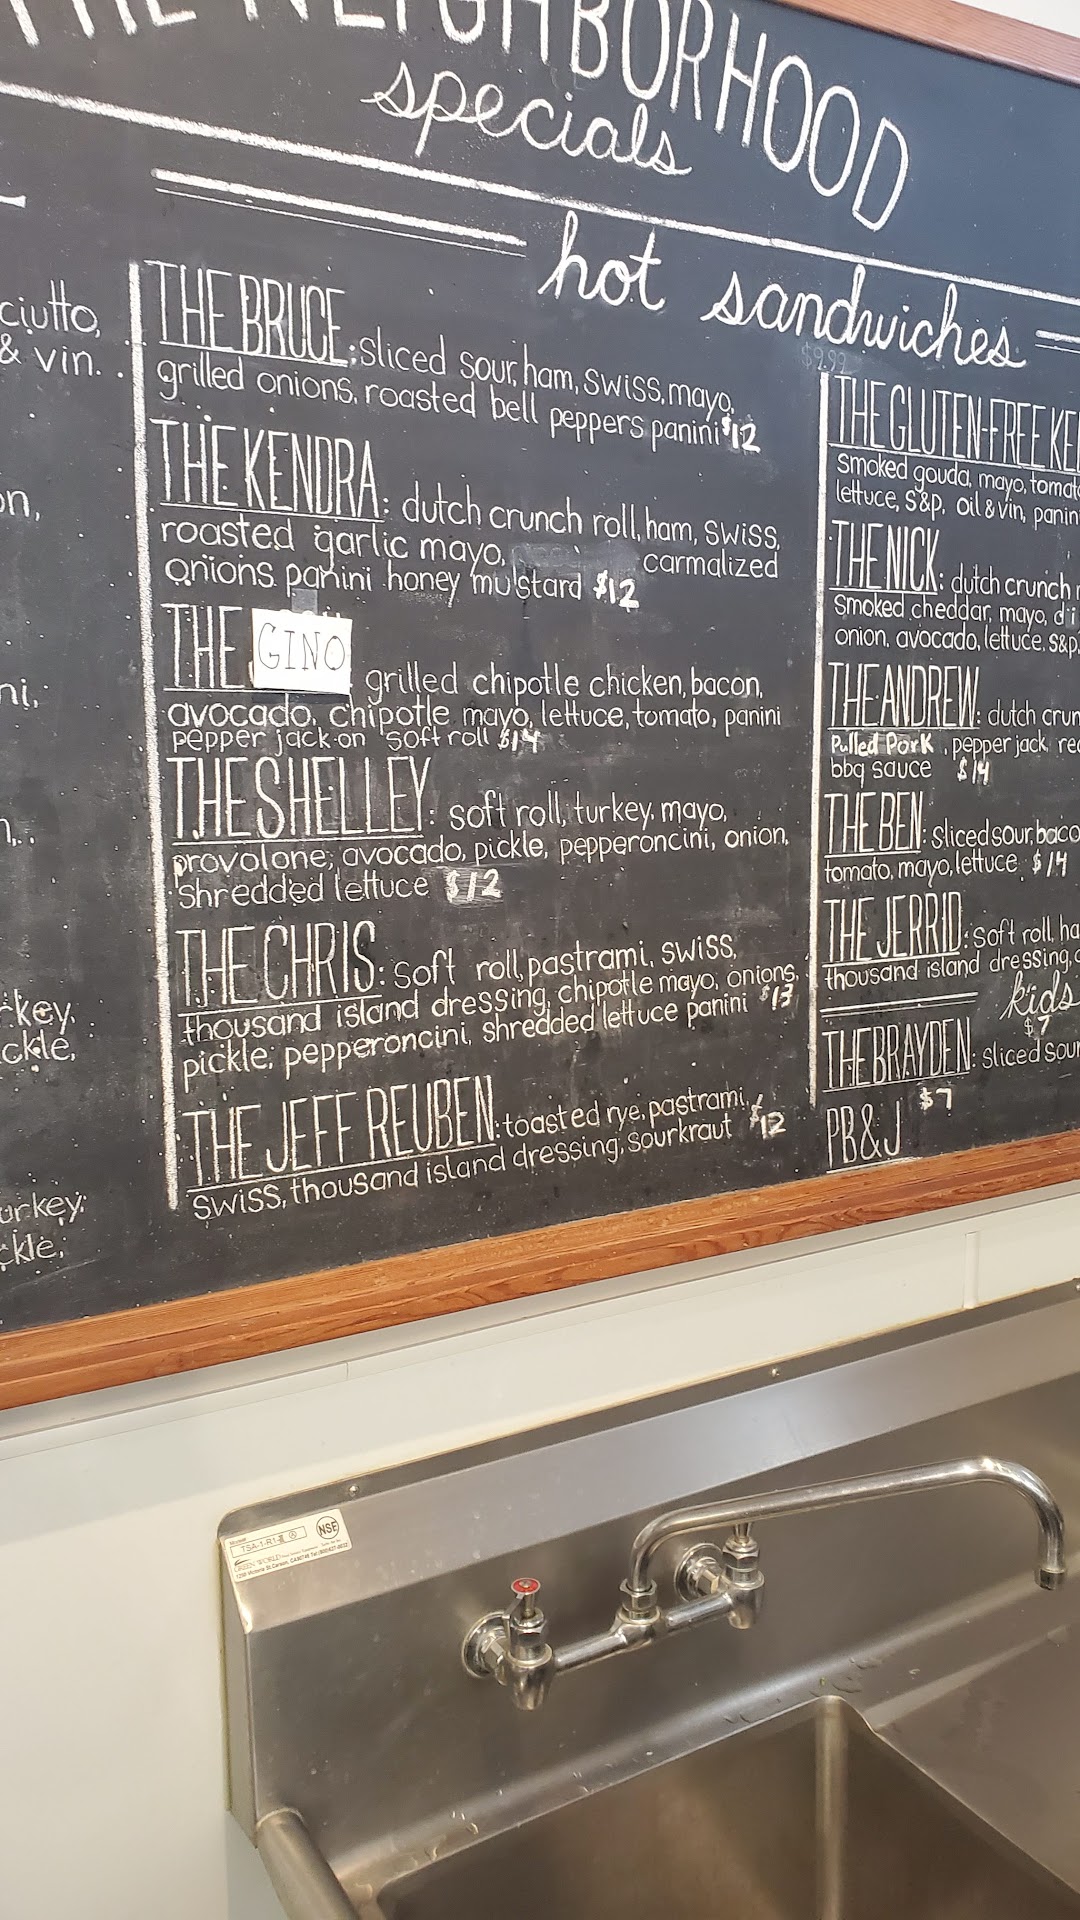 THE NEIGHBORHOOD
specials
hot sandwiches
& vin.
THE BRUCE: sliced sour, ham, swiss, mayo,
grilled onions, roasted bell peppers panini $12
THE KENDRA: dutch crunch roll, ham, swiss,
roasted garlic mayo, carmalized
onions panini honey mustard $12
THE GINO grilled chipotle chicken, bacon,
avocado, chipotle mayo, lettuce, tomato, panini
pepper jack on soft roll $14
THE SHELLEY: soft roll, turkey, mayo,
provolone, avocado, pickle, pepperoncini, onion,
shredded lettuce $12
THE CHRIS: soft roll, pastrami, swiss,
thousand island dressing, chipotle mayo, onions,
pickle, pepperoncini, shredded lettuce panini $13
THE JEFF REUBEN: toasted rye, pastrami,
swiss, thousand island dressing, sourkraut $12
$9.99
THE GLUTEN-FREE KE
smoked gouda, mayo, tomato
lettuce, s&p, oil & vin, panin
THE NICK: dutch crunch
smoked cheddar, mayo, di
onion, avocado, lettuce, s&p,
THE ANDREW: dutch crun
Pulled Pork, pepper jack, re
bbq sauce $14
THE BEN: sliced sour, baco
tomato, mayo, lettuce $14
THE JERRID: soft roll, ha
thousand island dressing,
kids
$7
THE BRAYDEN: sliced sour
PB&J $7
TSA-1-R1
NSF